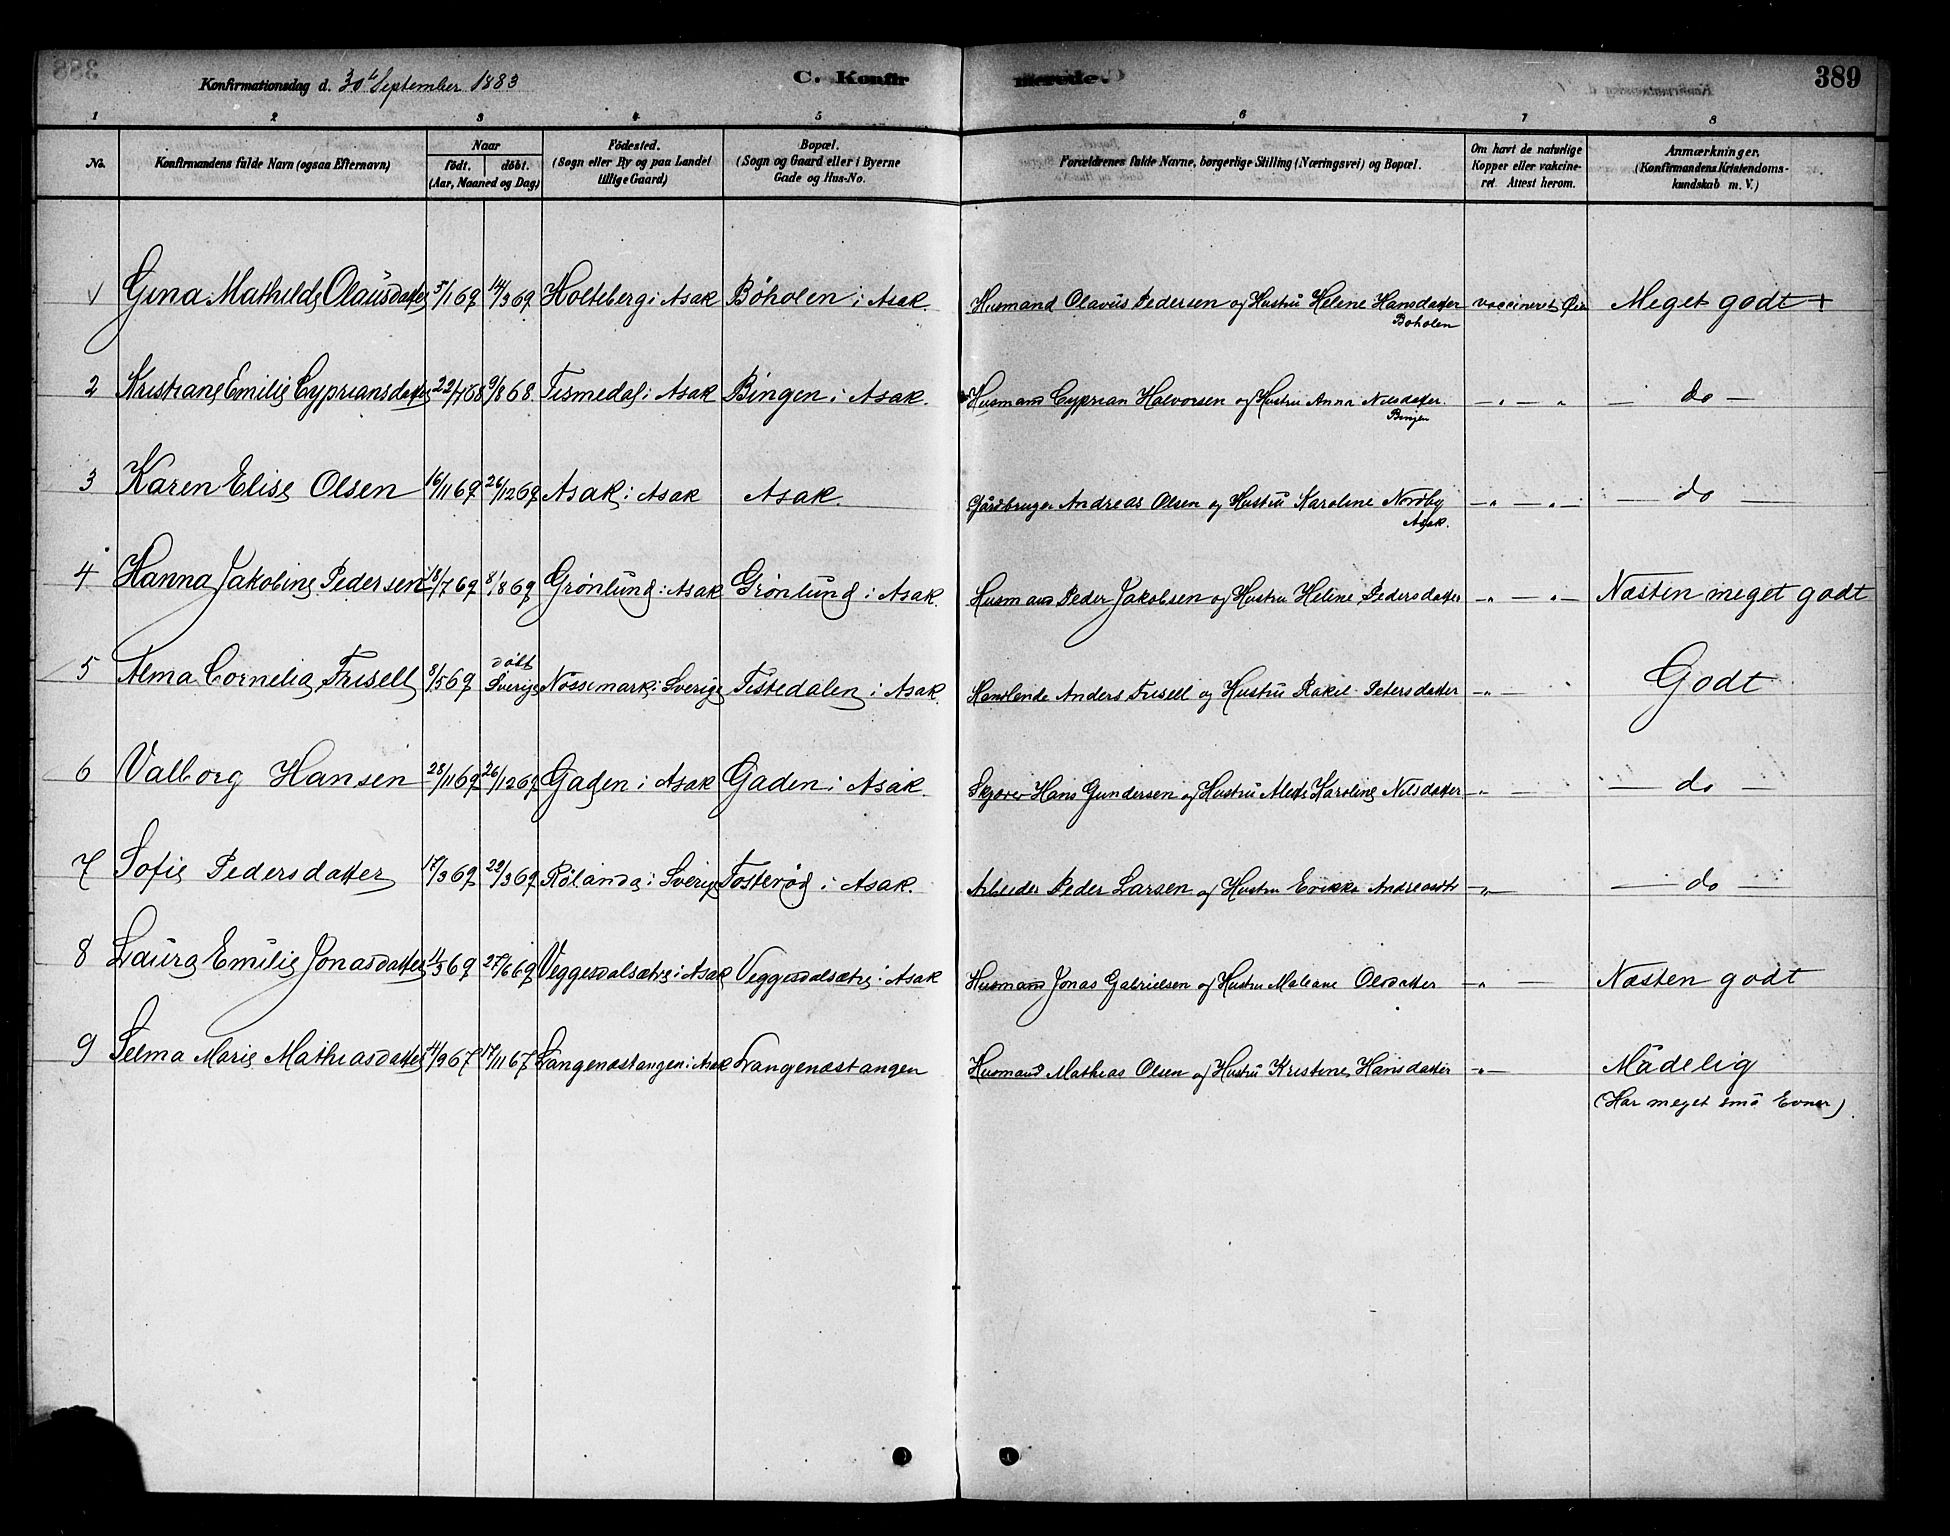 Konfirmationsdag d. 30te September 1883 C. Konfirmerede. 389
1 2 3 4 5 6 7 8
No. Konfirmandens fulde Navn (ogsaa Efternavn) Naar födt. döbt. (Aar, Maaned og Dag) Födested. (Sogn eller By og paa Landet tillige Gaard) Bopæl. (Sogn og Gaard eller i Byerne Gade og Hus-No. Forældrenes fulde Navne, borgerlige Stilling (Næringsvei) og Bopæl. Om havt de naturlige Kopper eller vakcineret. Attest herom. Anmærkninger, (Konfirmandens Kristendomskundskab m. V.)
1 Gina Mathilde Olausdatter 5/1 69 14/3 69 Holteberg i Asak Böholen i Asak. Husmand Olavus Pedersen og Hustru Helene Hansdatter vaccineret Meget godt +
Boholen
2 Kristiane Emilie Cypriansdatter 22/7 68 9/8 68 Tismedal i Asak Bingen i Asak. Husmand Cyprian Halvorsen og Hustru Anna Nilsdatter. — " — " — do —
Bingen
3 Karen Elise Olsen 16/11 69 26/12 69 Asak i Asak Asak. Gårdbruger Andreas Olsen og Hustru Karoline Nordby — " — " — — do —
Asak.
4 Hanna Jakobine Pedersen 18/7 69 8/8 69 Grönlund i Asak Grönlund i Asak. Husmand Peder Jakobsen og Hustru Helene Pedersdatter — " — " — Næsten meget godt
5 Alma Cornelia Frisell 8/5 69 döbt Sverige Nössemark i Sverige Tistedalen i Asak. Handlende Anders Frisell og Hustru Rakel Petersdatter — " — Godt
6 Valborg Hansen 28/11 69 26/12 69 Gaden i Asak Gaden i Asak. Hans Gundersen og Hustru Karoline Nilsdatter — " — — do —
7 Sofie Pedersdatter 17/3 69 29/3 69 Rölanda i Sverige Tosteröd i Asak. Arbeider Peder Larsen og Hustru Erikka — " — — do —
8 Laura Emilie Jonasdatter 11/3 69 27/6 69 Veggesdalsætre i Asak Veggesdalsætre i Asak Husmand Jonas Gabrielsen og Hustru Maleane Olsdatter — " — Næsten godt
9 Selma Marie Mathiasdatter 11/9 67 17/11 67 Langenæstangen i Asak Langenæstangen Husmand Mathias Olsen og Hustru Kristine Hansdatter — " — Mådelig
(Har meget små Evner)